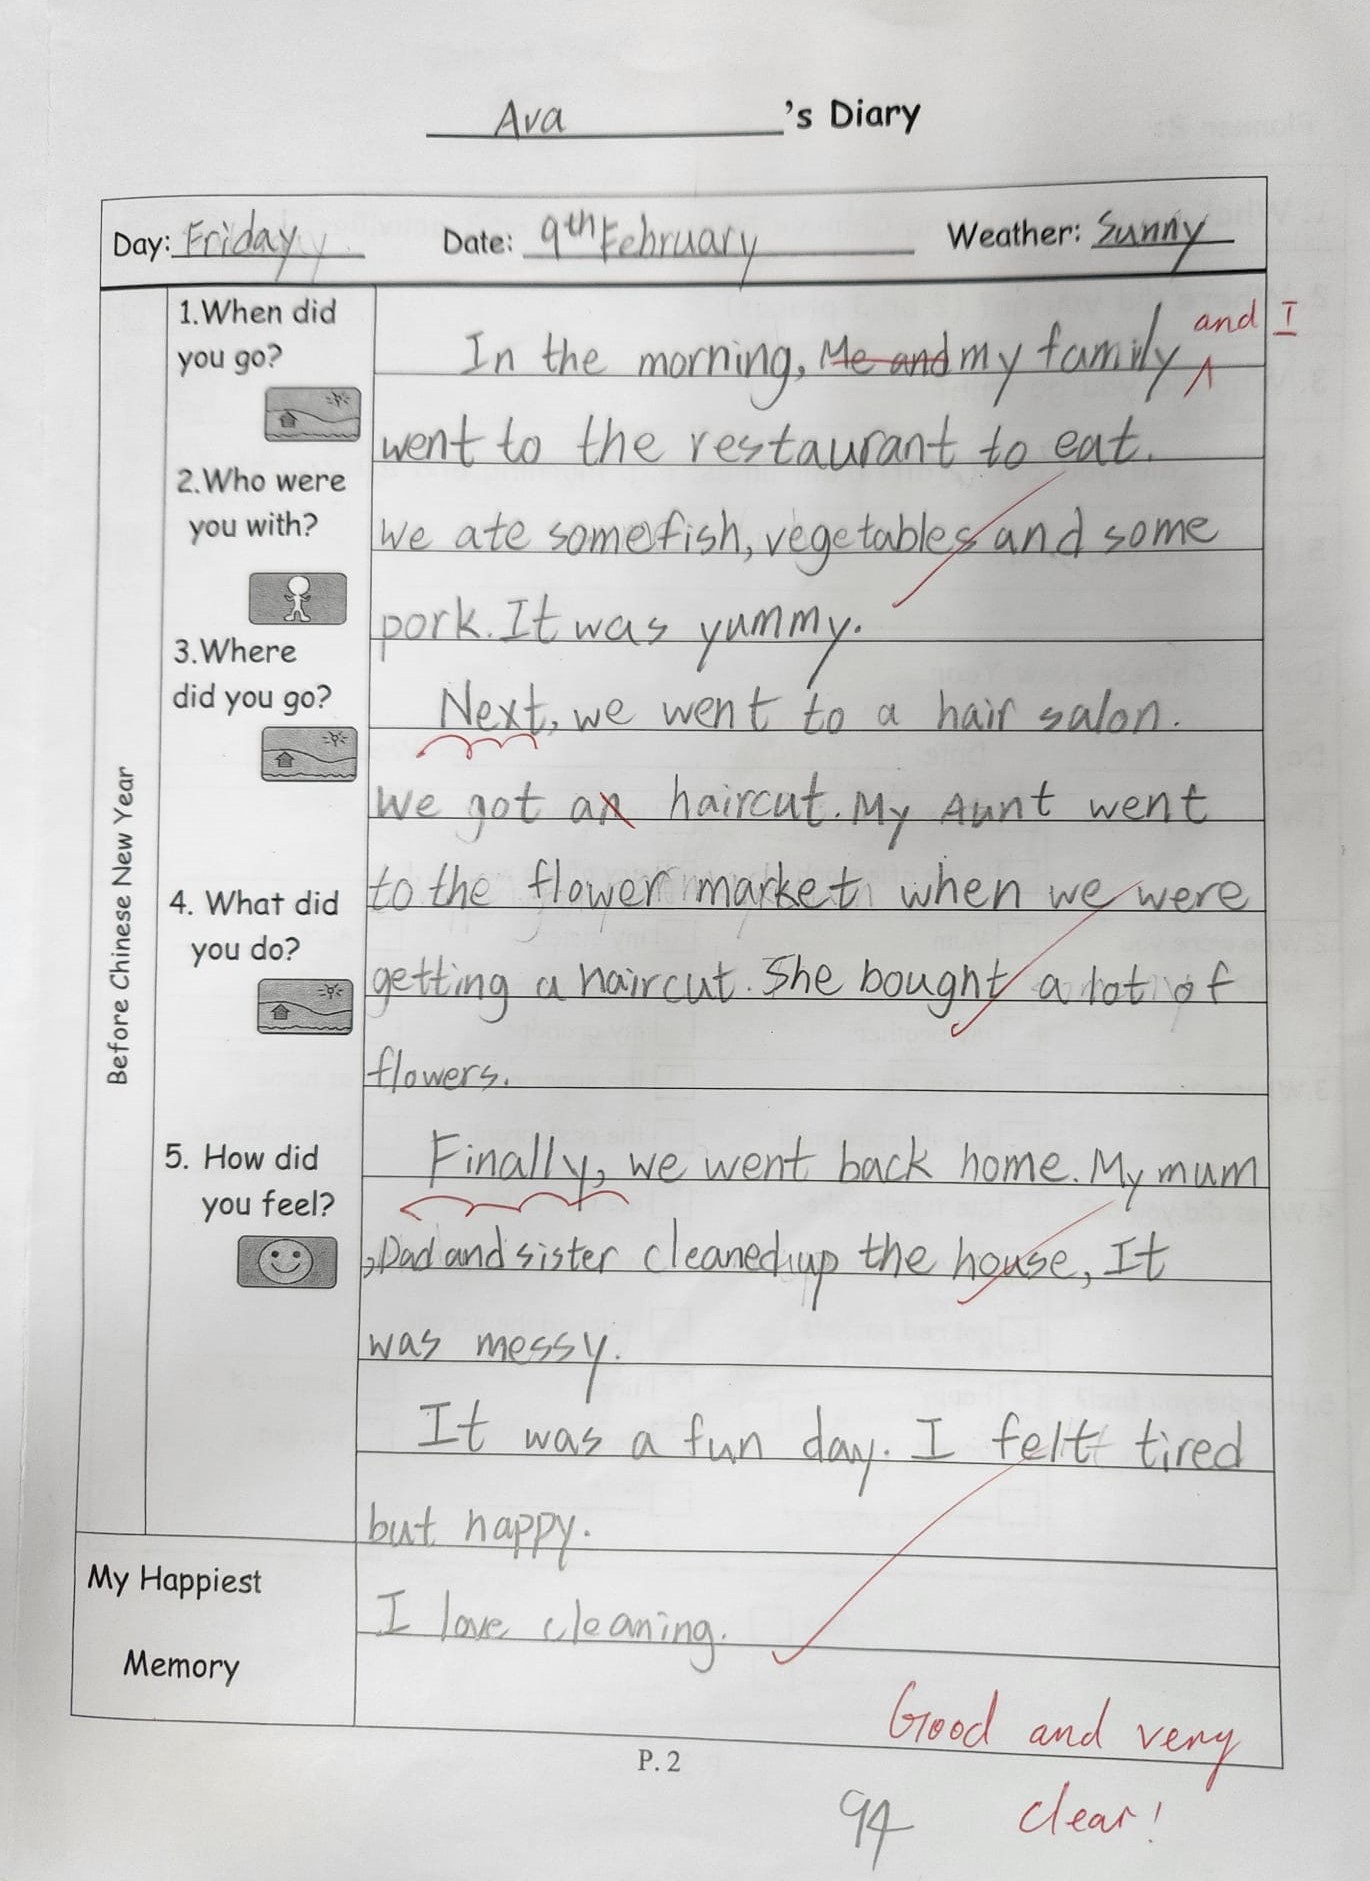 Ava 's Diary
Day: Friday Date: 9th February Weather: Sunny
Before Chinese New Year
1.When did
you go?
2.Who were
you with?
3.Where
did you go?
4. What did
you do?
5. How did
you feel?
and I
In the morning, Me and my family
went to the restaurant to eat.
We ate some fish, vegetables and some
pork. It was yummy.
Next, we went to a hair salon.
We got an haircut. My Aunt went
to the flower market when we were
getting a haircut. She bought a lot of
flowers.
Finally, we went back home. My mum
, Dad and sister cleaned up the house, It
was messy.
It was a fun day. I felt tired
but happy.
My Happiest
Memory
I love cleaning.
Good and very
clear!
P. 2
94